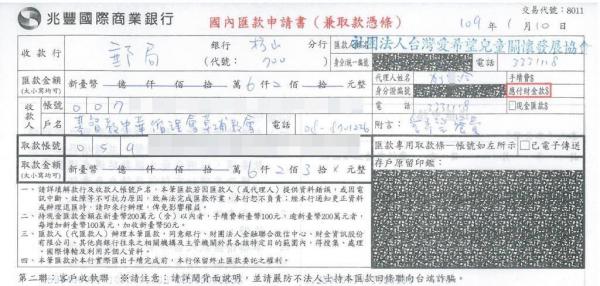 交易代號：8011
兆豐國際商業銀行 國內匯款申請書（兼取款憑條） 109年1月10日
收款行 郵局 銀行 松山 分行 （代號：700） 匯款人
社團法人台灣愛希望兒童關懷發展協會
身分證(統一編號) 電話 3331118
匯款金額（大小寫均可） 新臺幣 億 仟 佰 拾 萬 6仟 2佰 拾 元整
代理人姓名 手續費$
身分證編號 應付財金款$
電話 3331118 現金匯款$
收款人 帳號 007
戶名 電話
附言：
取款帳號 059
匯款專用取款條－帳號如左所示 已電子傳送
取款金額（大小寫均可） 新臺幣 億 仟 佰 拾 萬 6仟 2佰 3拾 元整
存戶原留印鑑：
一、請詳填解款行及收款人帳號戶名，本筆匯款若因匯款人（或代理人）提供資料錯誤，或因電
訊中斷、故障等不可抗力原因，致無法完成匯款作業，本行恕不負責；經本行通知更正資料
或辦理退匯時，請即來行辦理，俾免影響權益。
二、持現金匯款金額在新臺幣200萬元(含)以內者，手續費新臺幣100元，逾新臺幣200萬元者，
每增加新臺幣100萬元，加收新臺幣50元。
三、匯款人（代匯款人）辦理本筆匯款，同意銀行、財團法人金融聯合徵信中心、財金資訊股份
有限公司、其他與銀行往來之相關機構及主管機關於其各該特定目的範圍內，得蒐集、處理
、國際傳輸及利用其個人資料。
四、本筆匯款於本行實際匯出手續完成前，本行保留終止匯款委託之權利。
第二聯：客戶收執聯 ※請注意：請詳閱背面說明，並請嚴防不法人士持本匯款回條聯向台端詐騙。